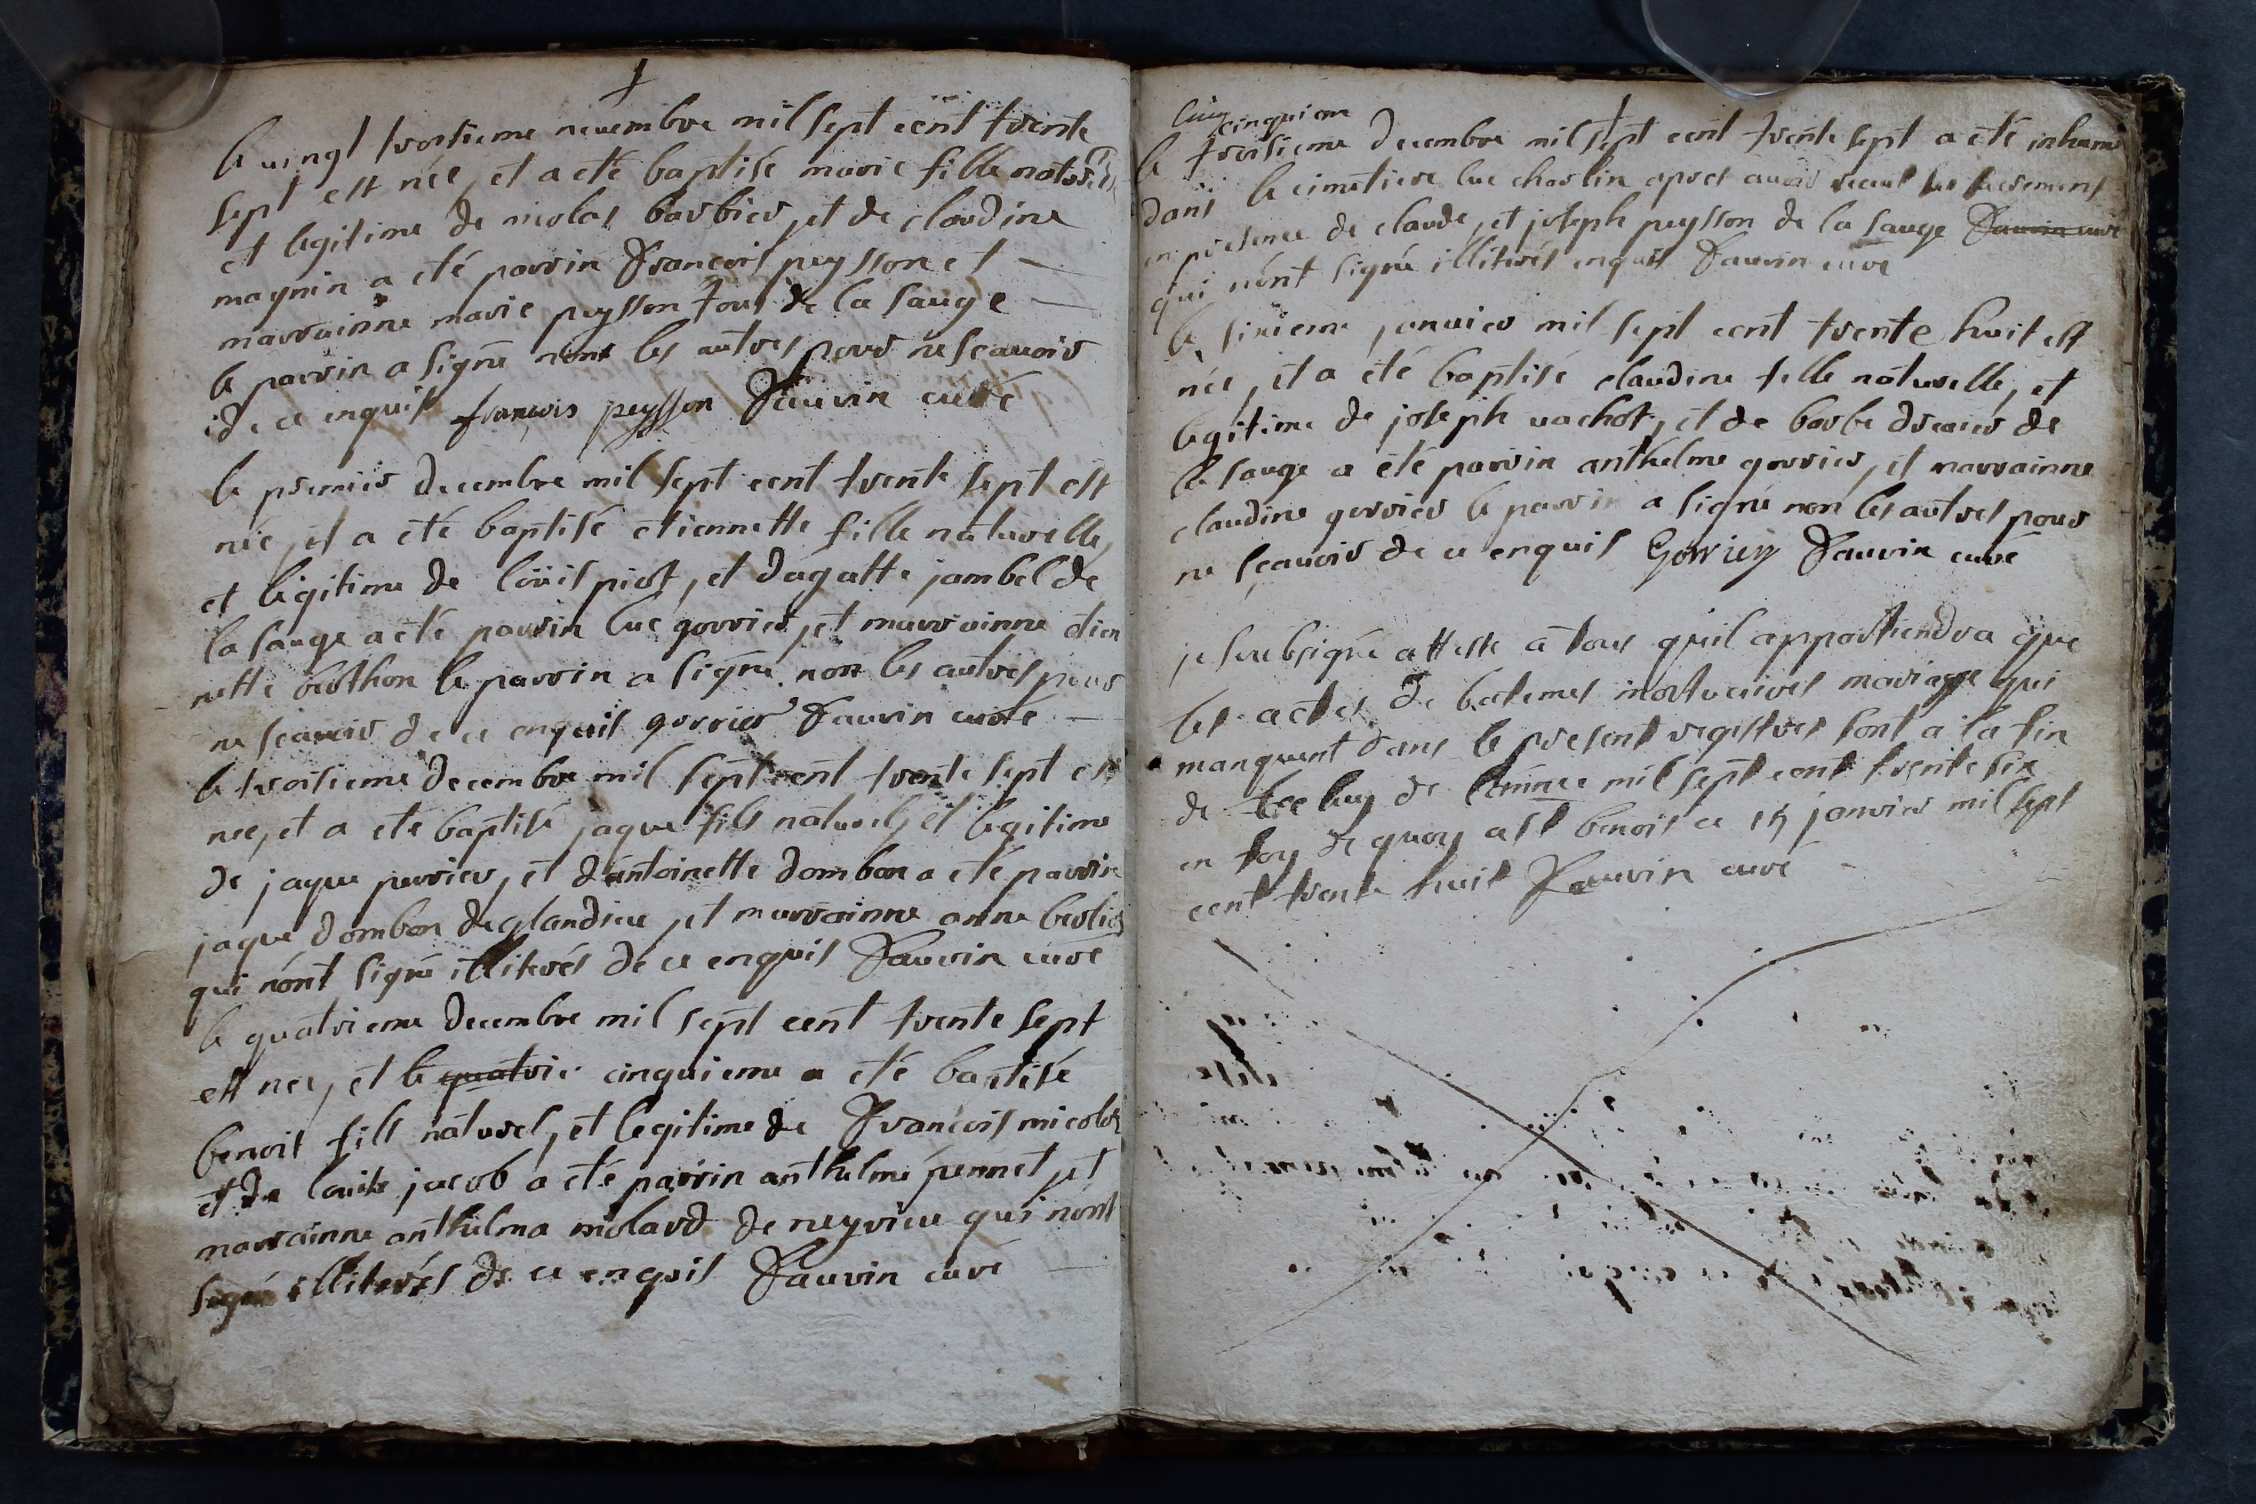 le vingt troisieme novembre mil sept cent trente
sept est née, et a eté baptisé marie fille naturelle
et legitime de nicolas barbier, et de claudine
magnin a eté parrin francois peysson et
marrainne marie peysson tous de la sauge
le parrin a signé non les autres pour ne scavoir
de ce enquis françois peysson Fauvin curé
le premier decembre mil sept cent trente sept est
née, et a eté baptisé etiennette fille naturelle,
et legitime de loüis piot, et dagatte jambel de
la sauge a eté parrin luc gorrier, et marrainne etien
nette berthon le parrin a signé non les autres pour
ne scavoir de ce enquis gorrier Fauvin curé
le troisieme decembre mil sept cent trente sept est
nee, et a eté baptisé jaque fils naturel, et legitime
de jaque perrier, et dantoinette dombon a eté parrin
jaque dombon de glandieu, et marrainne anne berlio
qui nont signé illiterés de ce enquis Fauvin curé
le quatrieme decembre mil sept cent trente sept
est nee, et le quatrie cinquieme a eté baptisé
benoit fils naturel, et legitime de francois micolas
et de louise jacob a eté parrin anthelme pennet, et
marrainne anthelma molard de neyrieu qui nont
signé illiterés de ce enquis Fauvin curé
cinq cinquieme
le troisieme decembre mil sept cent trente sept a eté inhumé
dans le cimetiere luc charlin apres avoir receut les sacremens
en presence de claude, et joseph peysson de la sauge Fauvin curé
qui nont signé illiterés enquis Fauvin curé
le sixieme janvier mil sept cent trente huit est
née, et a eté baptisé claudine fille naturelle, et
legitime de joseph vachot, et de barbe drevier de
la sauge a eté parrin anthelme gorrier, et marrainne
claudine gorrier le parrin a signé non les autres pour
ne scavoir de ce enquis Gorrier Fauvin curé
je soubsigné atteste a tous quil appartiendra que
les actes de batemes mortuaires mariage qui
manquent dans le present registres sont a la fin
de celuy de lannee mil sept cent trente six
en foy de quoy a St benoit ce 15 janvier mil sept
cent trente huit Fauvin curé